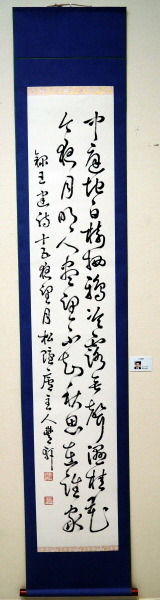 中庭地白樹栖鴉冷露無聲濕桂花
今夜月明人盡望不知秋思在誰家
錄王建詩十五夜望月松隱廬主人